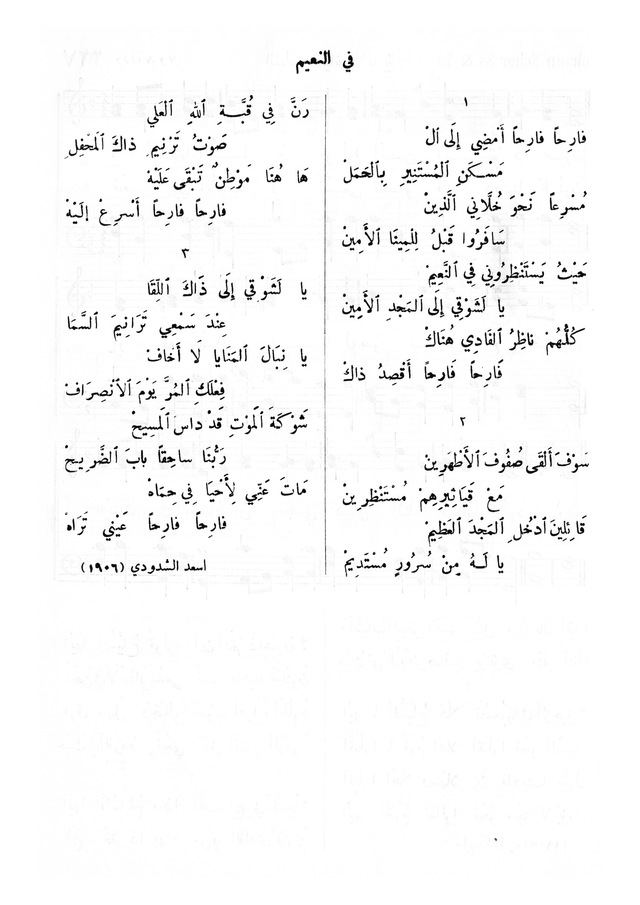 في النعيم
١
فارِحاً فارِحاً أَمْضِي إِلَى ٱلْ
مَسْكَنِ ٱلْمُسْتَنِيرِ بِٱلْحَمَلْ
مُسْرِعاً نَحْوَ خُلَّانِي ٱلَّذِينْ
سَافَرُوا قَبْلُ لِلْمِينَا ٱلأَمِينْ
حَيْثُ يَسْتَنْظِرُونِي فِي ٱلنَّعِيمْ
يا لَشَوْقِي إِلَى ٱلمَجْدِ ٱلأَمِينْ
كُلُّهُمْ ناظِرُ ٱلفَادِي هُنَاكْ
فَارِحاً فَارِحاً أَقْصِدُ ذاكْ
٢
سَوْفَ أَلقَى صُفُوفَ ٱلأَطْهَرِينْ
مَعْ قَيَاثِيرِهِمْ مُسْتَنْظِرِينْ
قَائِلِينَ ٱدْخُلِ ٱلمَجْدَ ٱلعَظِيمْ
يا لَهُ مِنْ سُرُورٍ مُسْتَدِيمْ
رَنَّ فِي قُبَّةِ ٱللهِ ٱلعَلِي
صَوْتُ تَرْنِيمِ ذاكَ ٱلمَحْفِلِ
هَا هُنَا مَوْطِنٌ تَبْقَى عَلَيْهْ
فارِحاً فارِحاً أَسْرِعْ إِلَيْهْ
٣
يا لَشَوْقِي إِلَى ذَاكَ ٱللِّقَا
عِنْدَ سَمْعِي تَرَانِيمَ ٱلسَّمَا
يا نِبَالَ ٱلمَنَايا لَا أَخافْ
فِعْلَكِ ٱلمُرَّ يَوْمَ ٱلاَنْصِرَافْ
شَوْكَةَ ٱلمَوْتِ قَدْ داسَ ٱلمَسِيحْ
رَبُّنَا ساحِقاً بابَ ٱلضَّرِيحْ
مَاتَ عَنِّي لِأَحْيَا فِي حِمَاهْ
فارِحاً فارِحاً عَيْنِي تَرَاهْ
اسعد الشدودي (١٩٠٦)